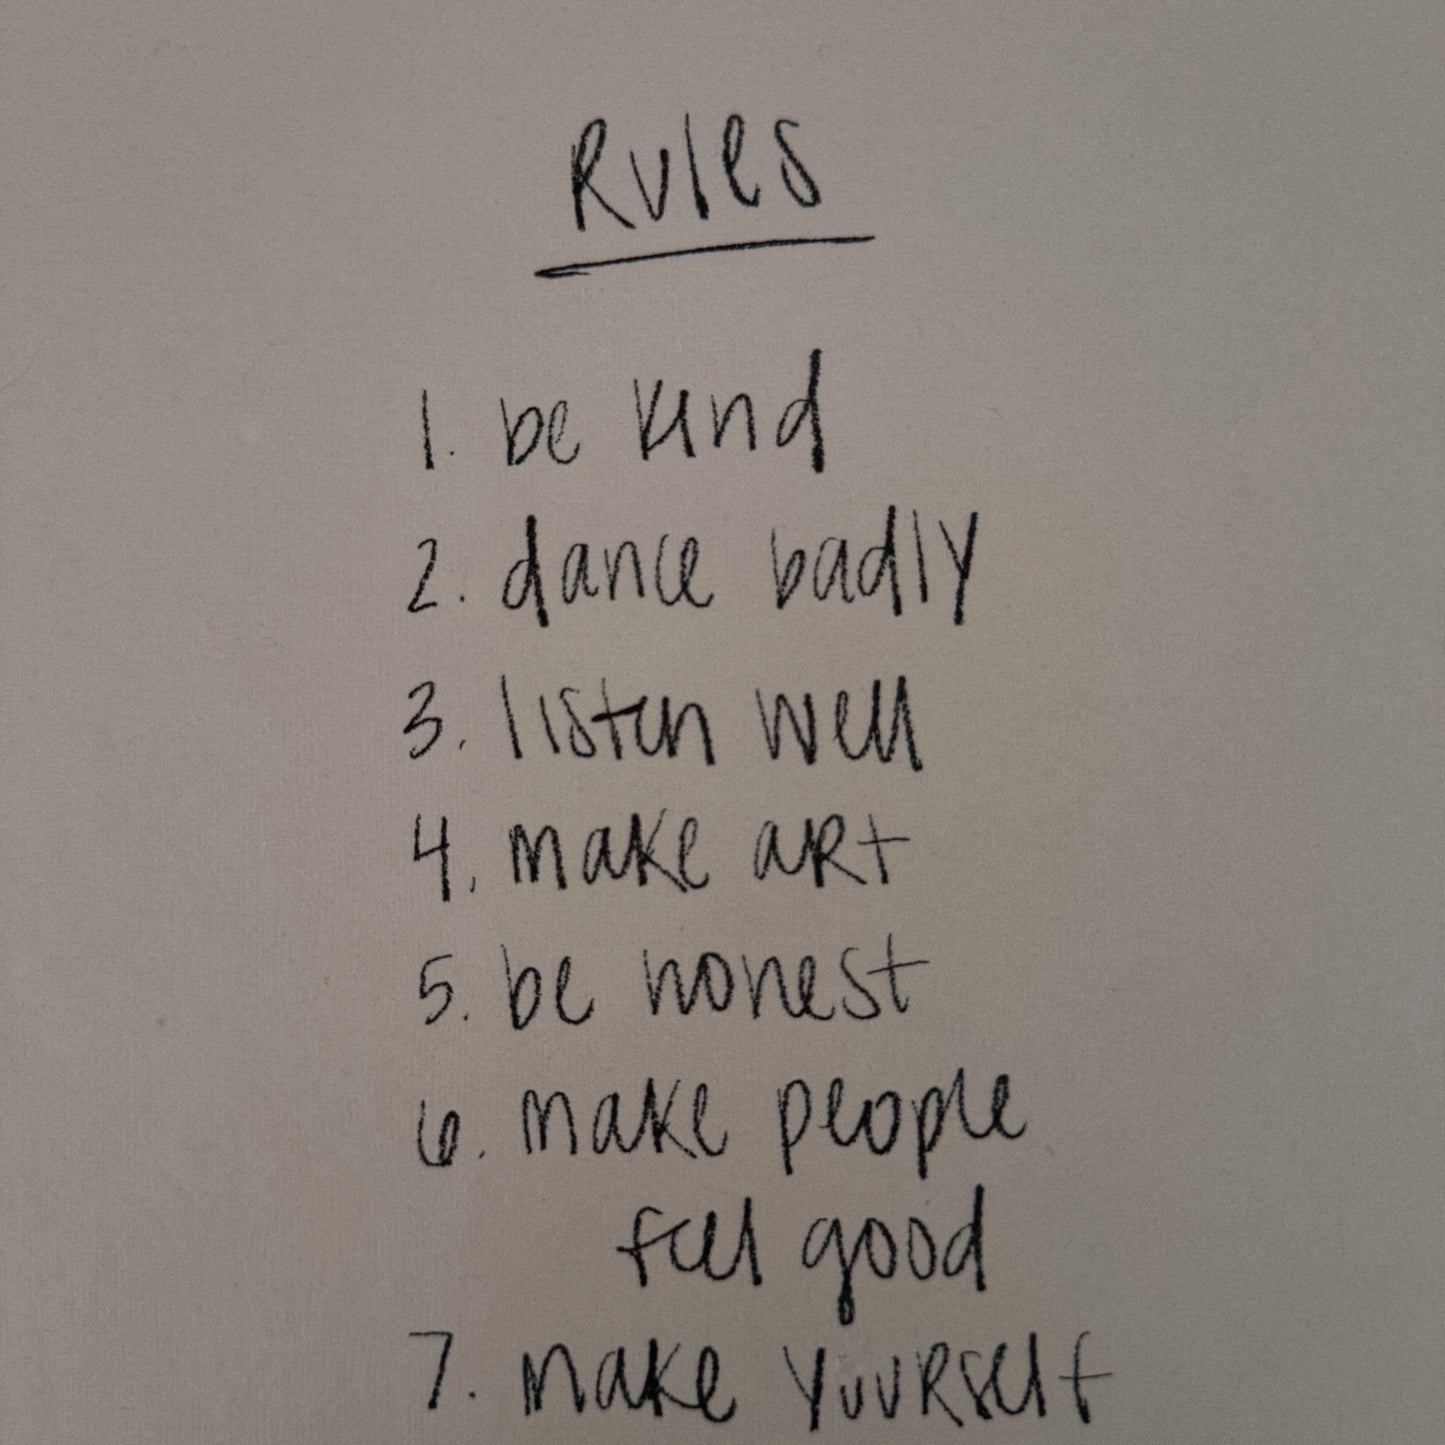 Rules
1. be kind
2. dance badly
3. listen well
4. make art
5. be honest
6. make people
feel good
7. make yourself